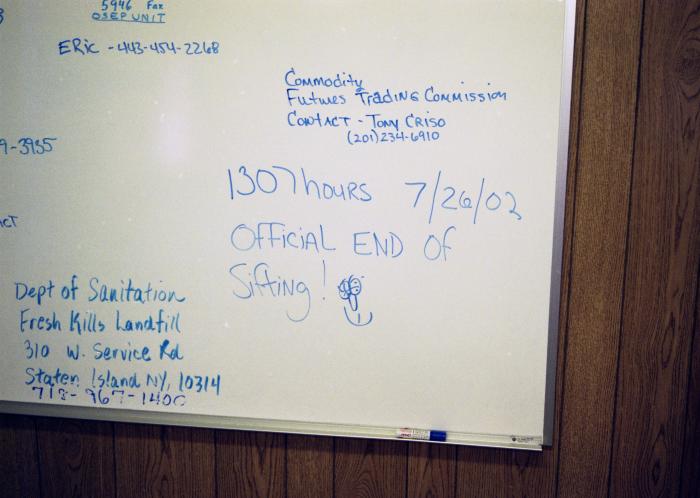 5946 Fax
OSEP UNIT
ERic - 443-454-2268
Commodity
Futures Trading Commission
Contact - Tony Criso
(201)234-6910
9-3935
1307 hours 7/26/02
Official END of
Sifting!
Dept of Sanitation
Fresh Kills Landfill
310 W. Service Rd
Staten Island NY, 10314
718-967-1400